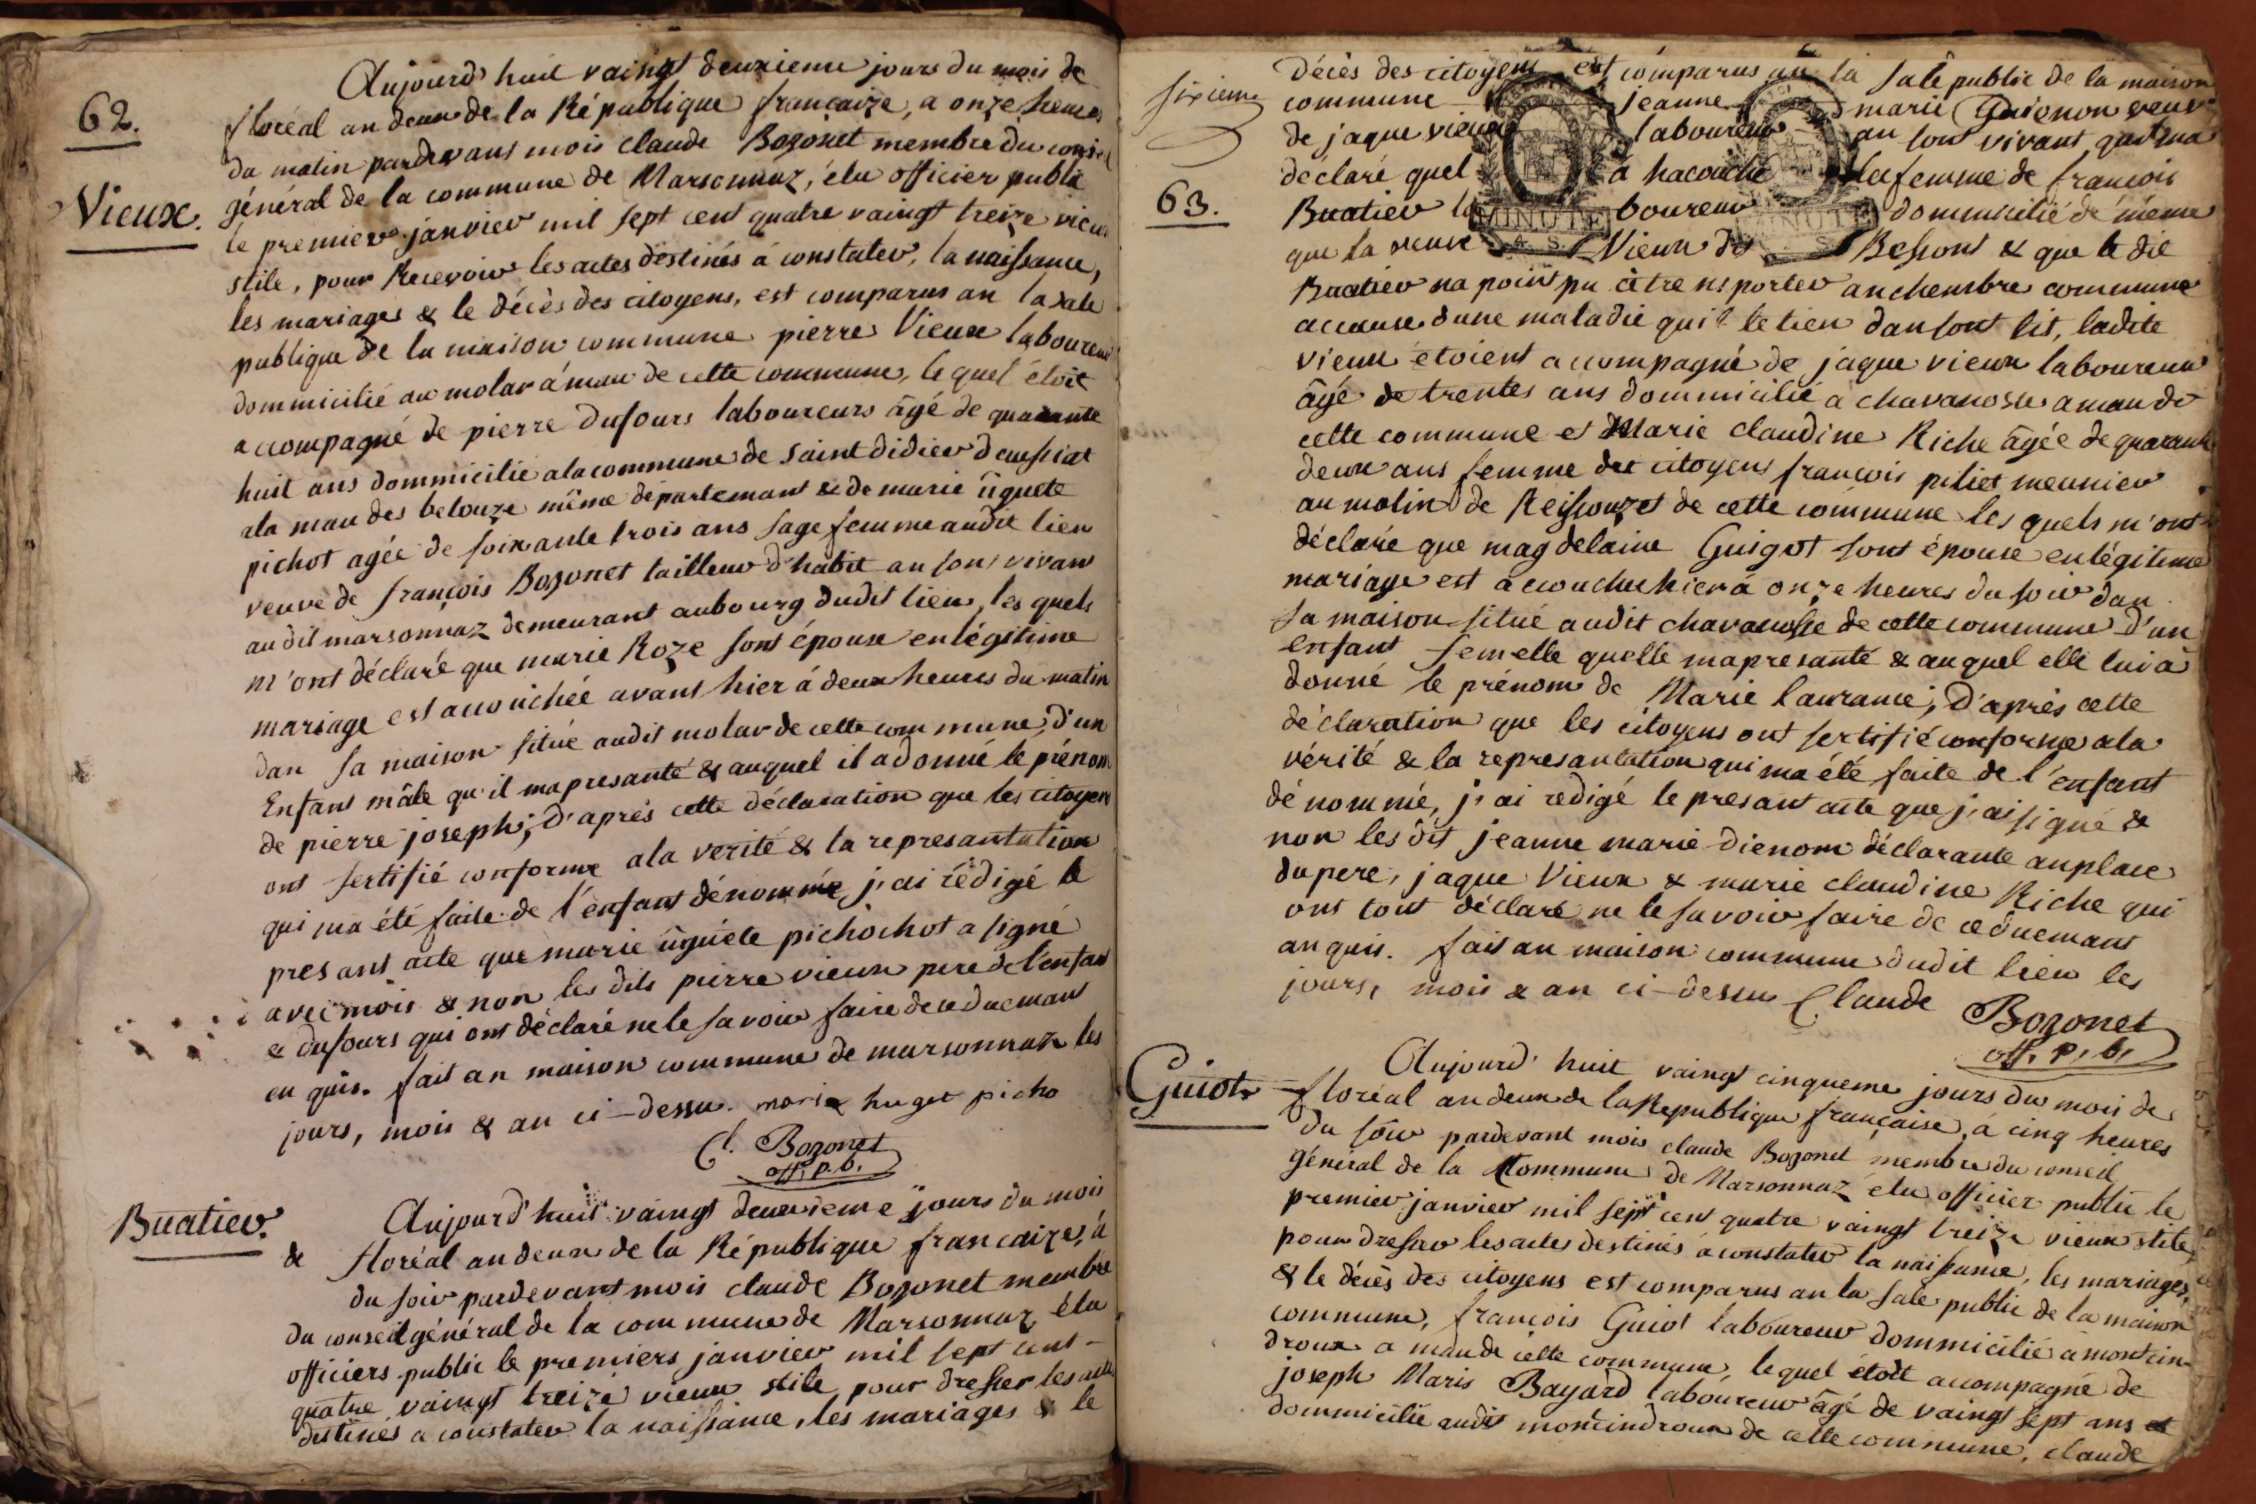 62.
Vieux.
Aujourd'huit vaingt deuxieme jours du mois de
floréal an deux de la République françaize, a onze heures
du matin pardevant mois claude Bozonet membre du conseil
général de la commune de Marsonnaz, élu officier public
le premier janvier mil sept cent quatre vaingt treize vieux
stile, pour Recevoir les actes destinés à constater, la naissance,
les mariages & le décès des citoyens, est comparus an la sale
publique de la maison commune pierre Vieux laboureur
dommicilié au molar a mau de cette commune, le quel étoit
accompagné de pierre Dufours laboureurs âgé de quarante
huit ans dommicilié a la commune de Saint didier daussiat
ala mau des belouze même departemant & de marie ûguete
pichot agée de soixante trois ans sage femme audit lieu
veuve de françois Bozonet tailleur d'habit an sont vivant
audit marsonnaz demeurant aubourg dudit lieu, les quels
m'ont déclaré que marie Roze sont épouse en légitime
mariage est accouchée avant hier à deux heures du matin
dan sa maison situé audit molar de cette commune, d'un
Enfant mâle qu'il ma presanté & auquel il a donné le prénom
de pierre joseph; d'après cette déclaration que les citoyens
ont sertifié conforme a la verité & la represantation
qui ma été faite de l'enfant dénommé j'ai rédigé le
presant acte que marie ûguéte pichochot a signé
avec mois & non les dits pierre vieux pere de l'enfant
& dufours qui ont déclaré ne le savoir faire de ce duemant
en quis. fait an maison commune de marsonnaz les
jours, mois & an ci-dessu. maria huget picho
Cl. Bozonet
off. p. b.
Buatier.
Aujourd'huit vaingt deuxieme jours du mois
de floréal an deux de la République françaize, à
du soir pardevant mois claude Bozonet membre
du conseil général de la commune de Marsonnaz élu
officiers public le premiers janvier mil sept cent-
quatre vaingt treize vieux stile pour dresser les actes
destinés a constater la naissance, les mariages & le
sixieme
63.
décès des citoyens est comparus an la sale public de la maison
commune jeanne marie Guienon veuve
de jaque vieux laboureur an sont vivant, qui ma
déclaré quel à hacouché la femme de françois
Buatier laboureur dommicilié de même
que la veuve Vieux des Bessons & que le dit
Buatier na point pu cêtre nsporter anchembre commune
accause dune maladie quil le tien dan sont lit, ladite
vieux étoient accompagné de jaque vieux laboureur
âgé de trentes ans dommicilié a chavanosse a mau de
cette commune et Marie claudine Riche âgée de quarante
deux ans femme du citoyens françois piliet meunier
au molin de Reissouzet de cette commune les quels m'ont
déclaré que magdelaine Guigot sont épouse en légitime
mariage est accouchu hier à onze heures du soir dan
sa maison situé audit chavanosse de cette commune d'un
enfant femelle quelle ma presanté & auquel elle lui à
donné le prénom de Marie laurance; D'après cette
déclaration que les citoyens ont sertifié conforme a la
vérité & la represantation qui ma été faite de l'enfant
dénommé, j'ai redigé le presant acte que j'ai signé &
non les dit jeanne marie dienom déclarante anplace
du pere, jaque Vieux & marie claudine Riche qui
ont tout déclaré ne le savoir faire de ce duemant
anquis. fait an maison commune dudit lieu les
jours, mois & an ci-dessu Claude Bozonet
off. p. b.
MINUTE
Guiot.
Aujourd'huit vaingt cinqueme jours du mois de
floréal an deux de la Republique française, à cinq heures
du soir pardevant mois claude Bozonet membre du conseil
général de la Commune de Marsonnaz élu officier public le
premier janvier mil sept cent quatre vaingt treize vieux stile,
pour dresser les actes destinés à constater la naissance, les mariages,
& le décès des citoyens est comparus an la sale public de la maison
commune, françois Guiot laboureur dommicilié a montcin-
droux a mau de cette commune, lequel étoit accompagné de
joseph Maris Bayard laboureur âgé de vaingt sept ans et
dommicilié audit moncindroux de cette commune, claude